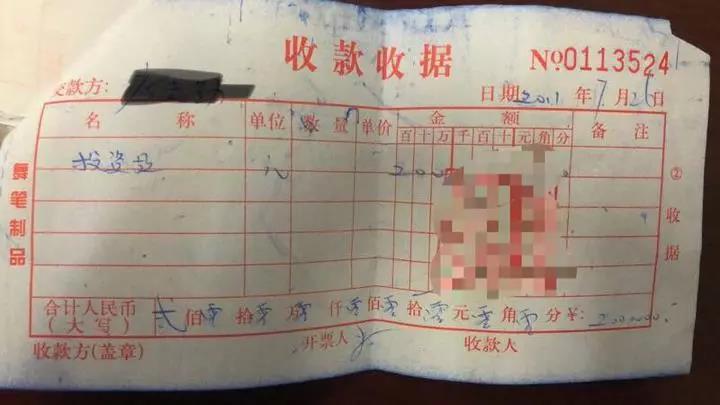 收款收据 №0113524
交款方: 日期 2011 年 7 月 26 日
名称 单位 数量 单价 金额 备注
百十万千百十元角分
投资款 元
合计人民币(大写) 贰佰零拾零万零仟零佰零拾零元零角零分 ¥: 2000000.
收款方(盖章) 开票人 收款人
舞笔制品
②收据